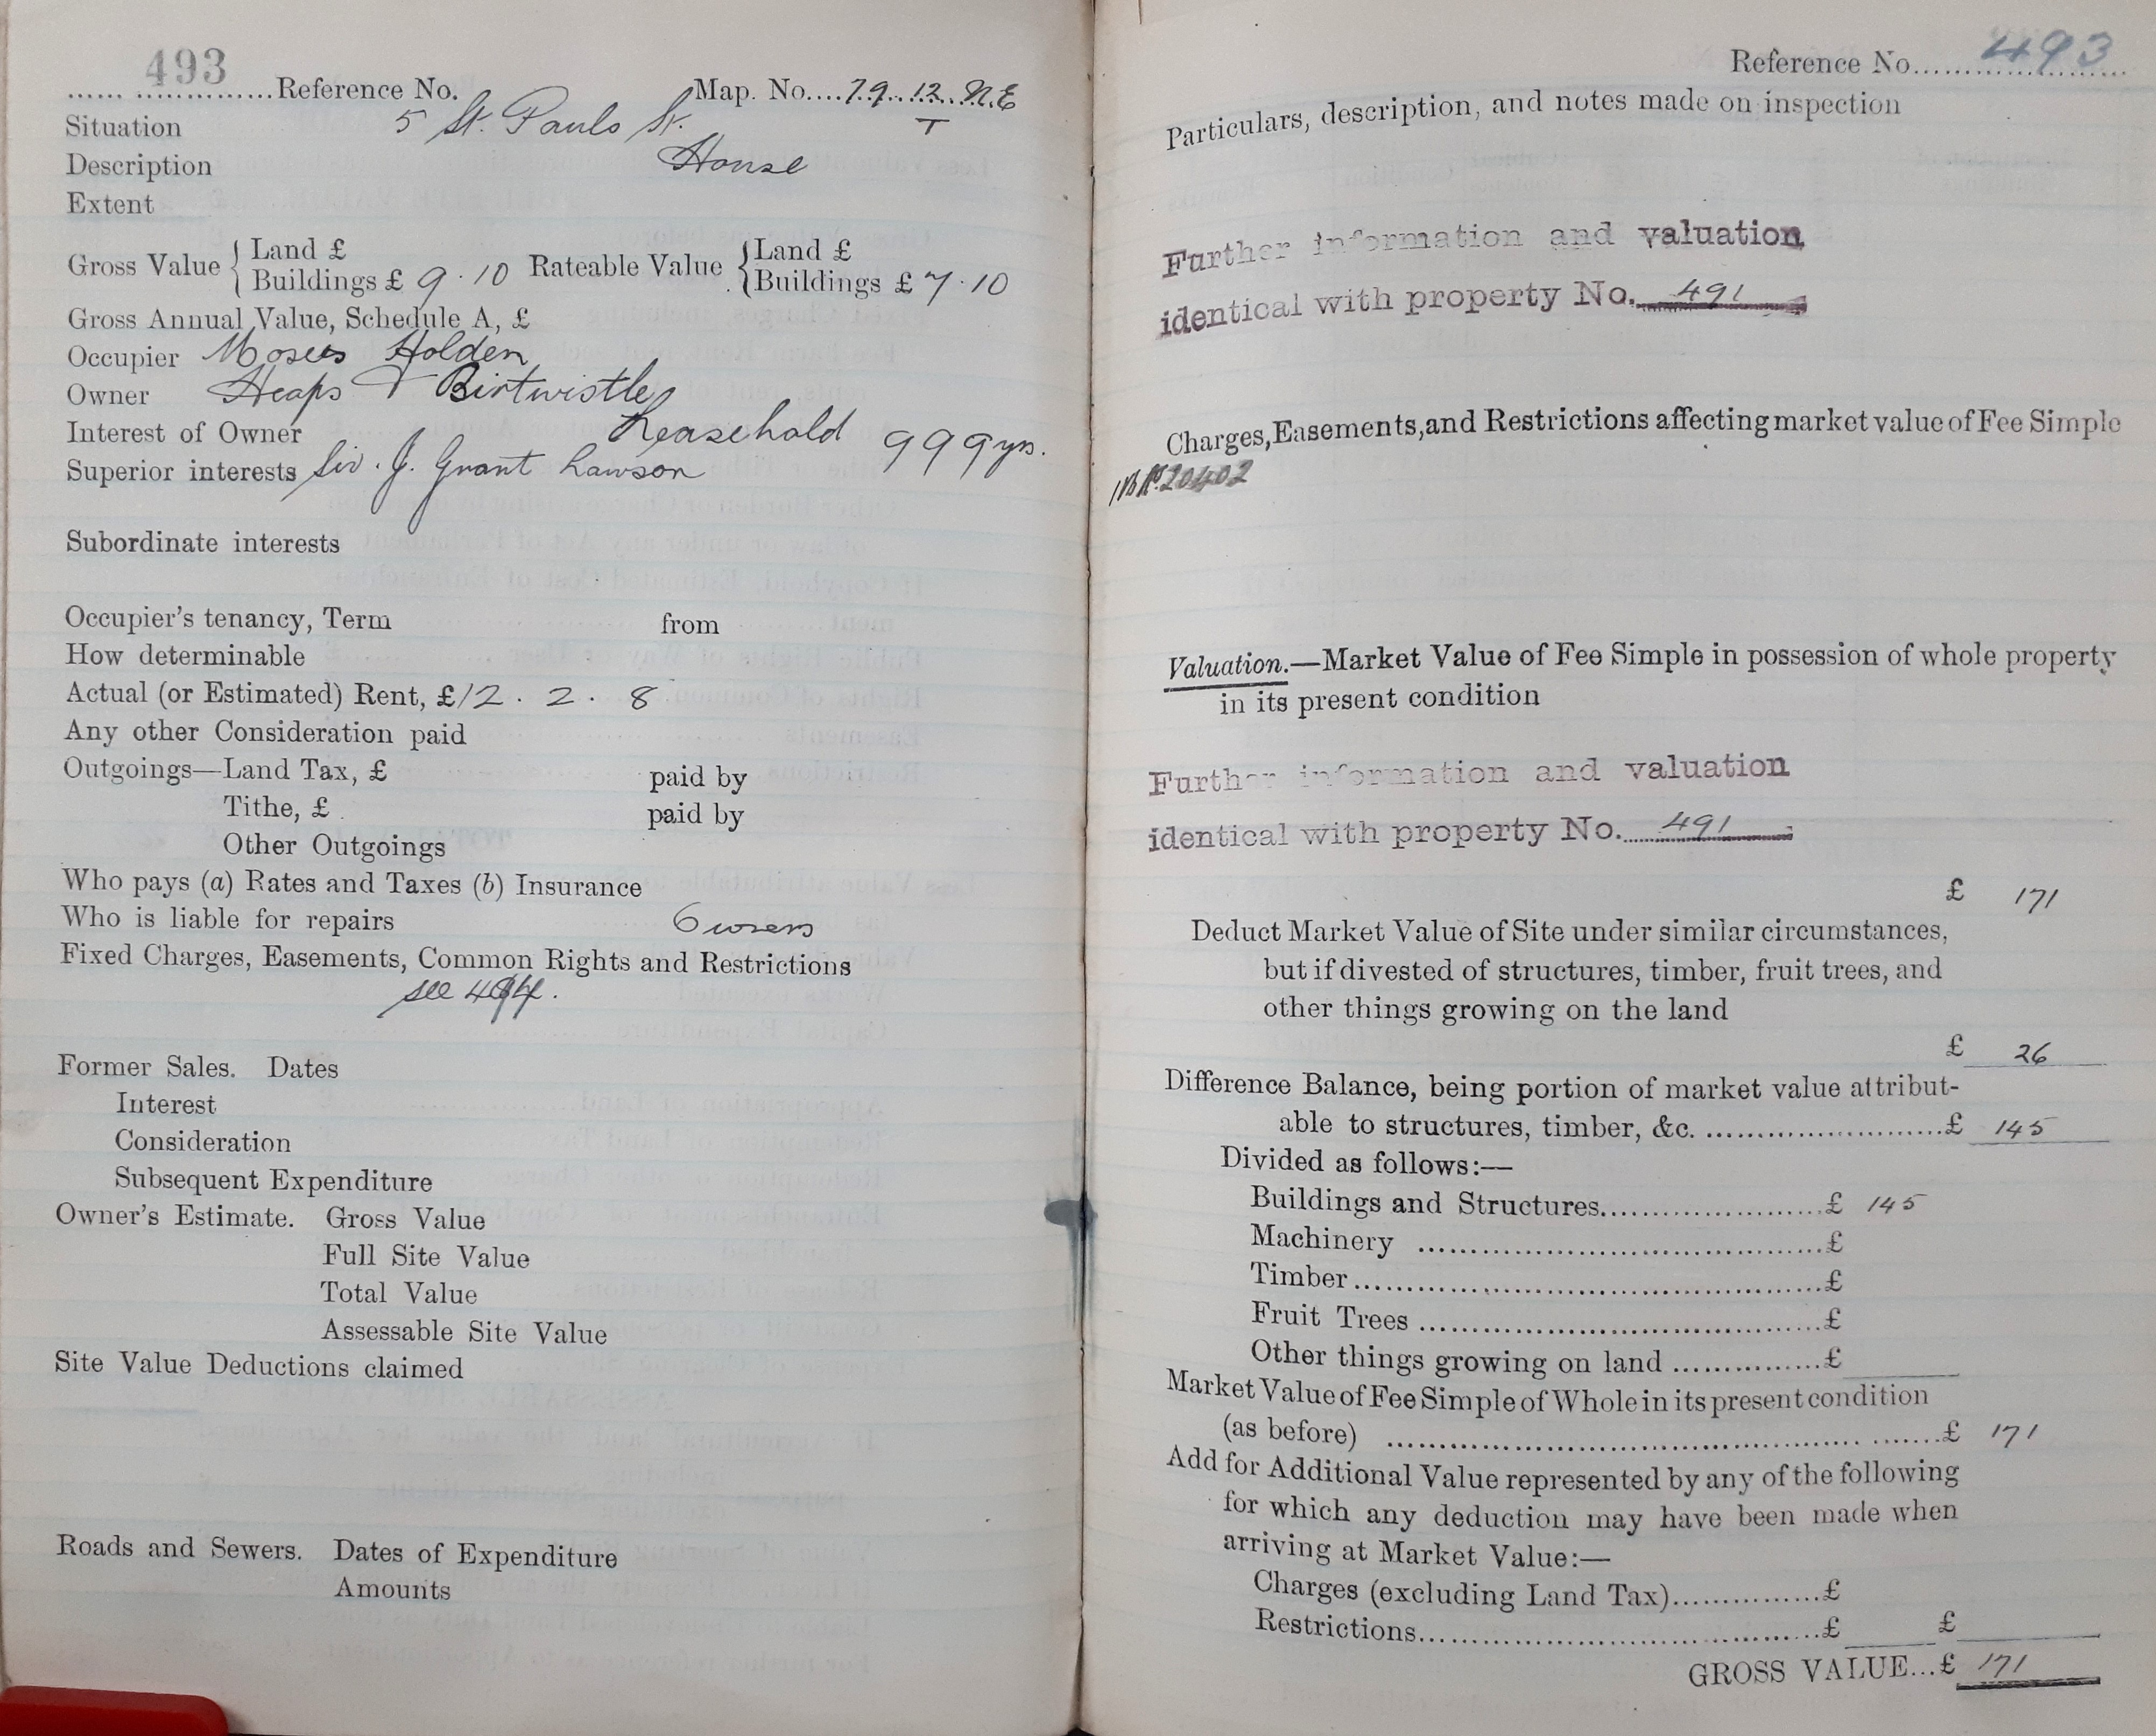 493
...... ..............Reference No. Map. No....79..12..N.E
T
Situation 5 St. Pauls St.
Description House
Extent
Gross Value { Land £ Rateable Value { Land £
Buildings £ 9·10 Buildings £ 7·10
Gross Annual Value, Schedule A, £
Occupier Moses Holden
Owner Heaps & Birtwistle
Interest of Owner Leasehold 999 yrs.
Superior interests Sir. J. Grant Lawson
Subordinate interests
Occupier's tenancy, Term from
How determinable
Actual (or Estimated) Rent, £12. 2. 8
Any other Consideration paid
Outgoings—Land Tax, £ paid by
Tithe, £ paid by
Other Outgoings
Who pays (a) Rates and Taxes (b) Insurance
Who is liable for repairs Owners
Fixed Charges, Easements, Common Rights and Restrictions
see
Former Sales. Dates
Interest
Consideration
Subsequent Expenditure
Owner's Estimate. Gross Value
Full Site Value
Total Value
Assessable Site Value
Site Value Deductions claimed
Roads and Sewers. Dates of Expenditure
Amounts
Reference No. 493
Particulars, description, and notes made on inspection
Further information and valuation
identical with property No. 491
Charges, Easements, and Restrictions affecting market value of Fee Simple
20402
Valuation.—Market Value of Fee Simple in possession of whole property
in its present condition
Further information and valuation
identical with property No. 491
£ 171
Deduct Market Value of Site under similar circumstances,
but if divested of structures, timber, fruit trees, and
other things growing on the land
£ 26
Difference Balance, being portion of market value attribut-
able to structures, timber, &c. ........................£ 145
Divided as follows:—
Buildings and Structures......................£ 145
Machinery ........................................£
Timber..............................................£
Fruit Trees ........................................£
Other things growing on land ...............£
Market Value of Fee Simple of Whole in its present condition
(as before) ........................................................£ 171
Add for Additional Value represented by any of the following
for which any deduction may have been made when
arriving at Market Value:—
Charges (excluding Land Tax)...............£
Restrictions........................................£ £
GROSS VALUE...£ 171